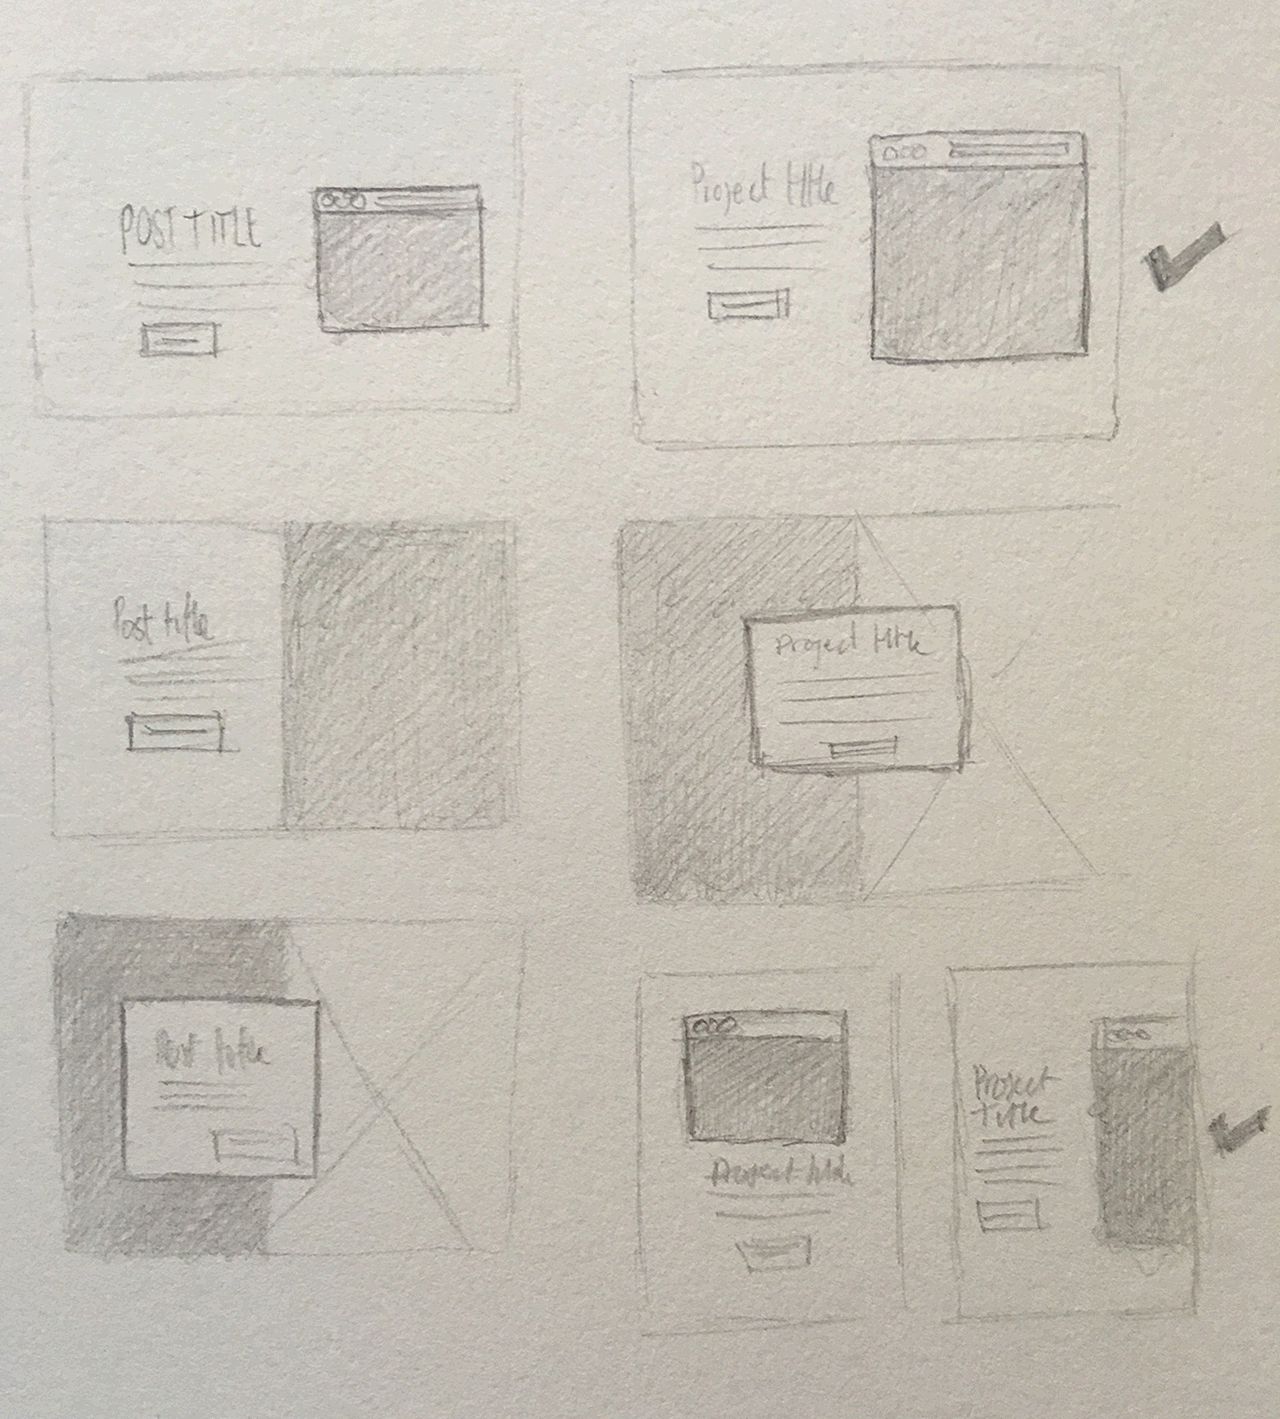 POST TITLE
Project title
Post title
Project title
Post title
Project title
Project
title